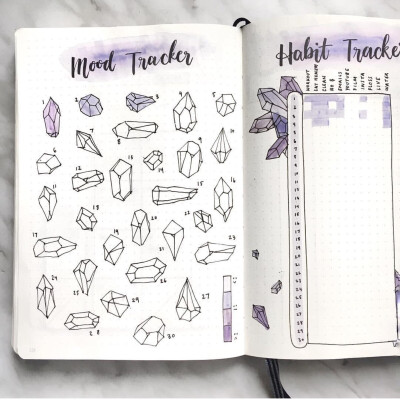 Mood Tracker
2 3 4 5
7 8 9
6 14
13 19
11 15 16
18 20 22
17 19 23
21
24 25
29 27
28 30
Habit Tracke
WORKOUT
EAT
CLEAN
EMAILS
YOUTUBE
FILM
INSTA
FLOSS
LIVE
WATER
1
2
3
4
5
6
7
8
9
10
11
12
13
14
15
16
17
18
19
20
21
22
23
24
25
26
27
28
29
30